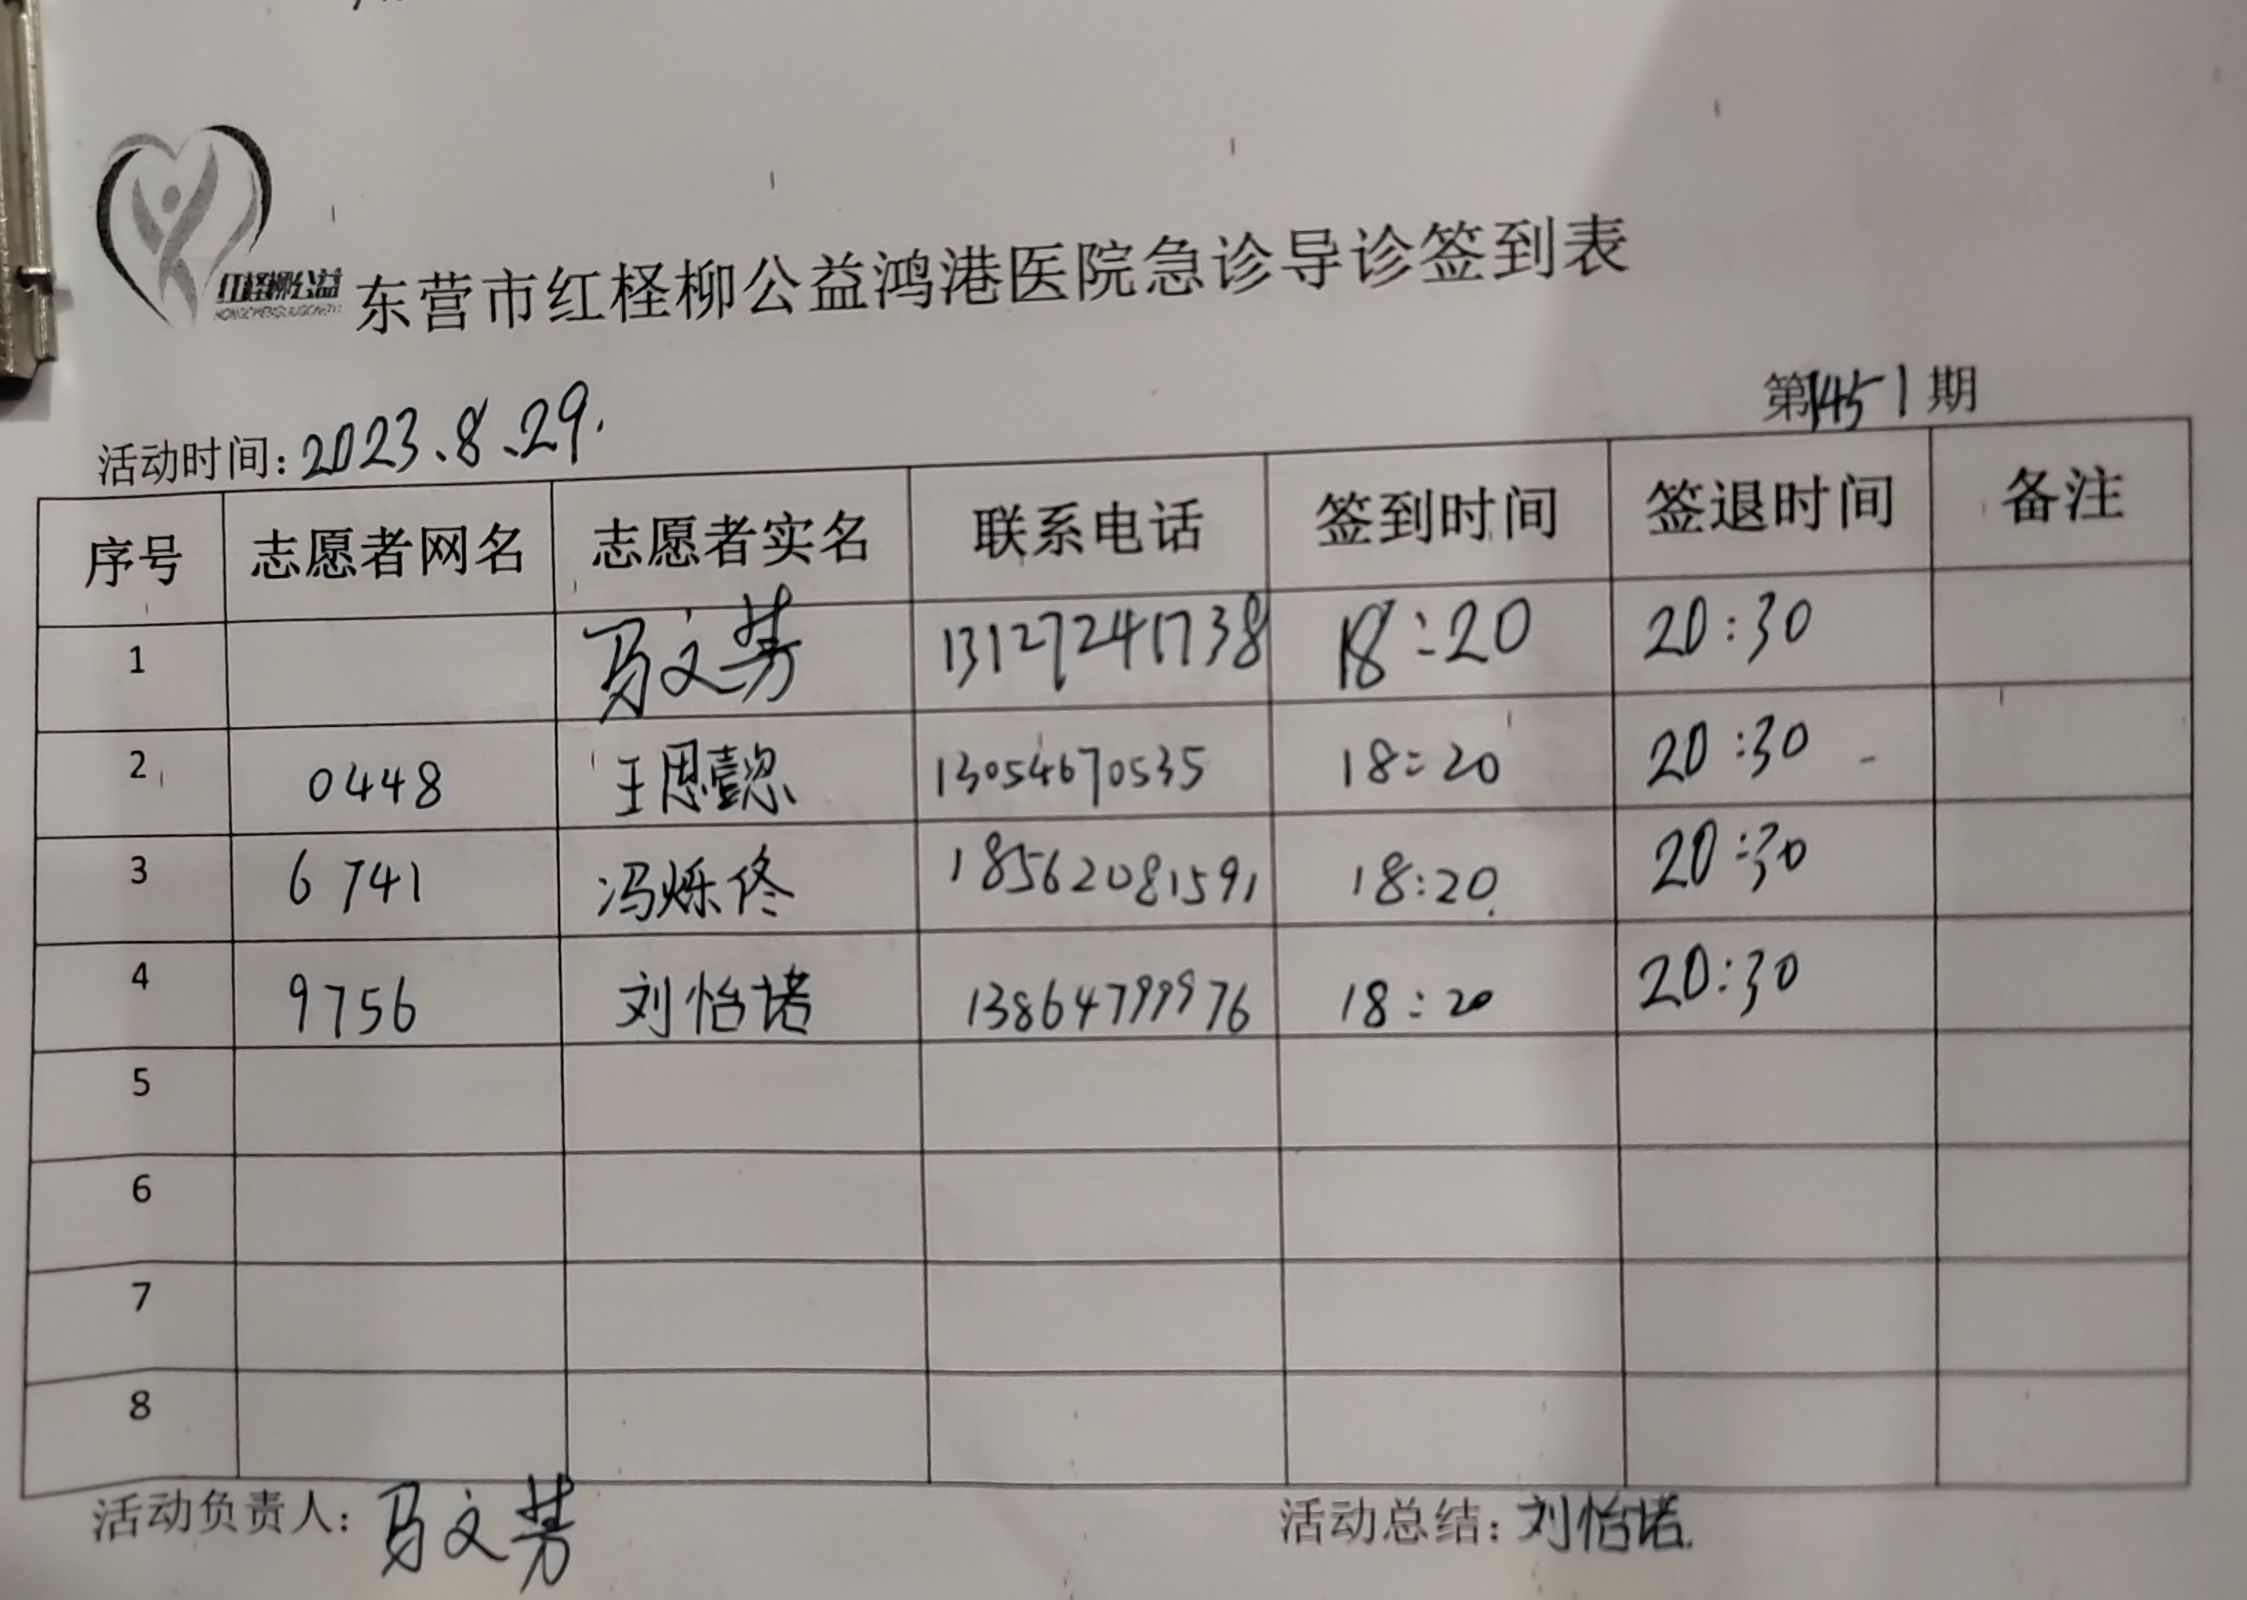 红柽柳公益
HONGCHENGLIUGONGYI
东营市红柽柳公益鸿港医院急诊导诊签到表
第1451期
活动时间：2023.8.29.
序号 志愿者网名 志愿者实名 联系电话 签到时间 签退时间 备注
1 马文芳 13127241738 18:20 20:30
2 0448 王恩懿 13054670535 18:20 20:30
3 6741 冯烁佟 18562081591 18:20 20:30
4 9756 刘怡诺 13864799976 18:20 20:30
5
6
7
8
活动负责人：马文芳 活动总结：刘怡诺.